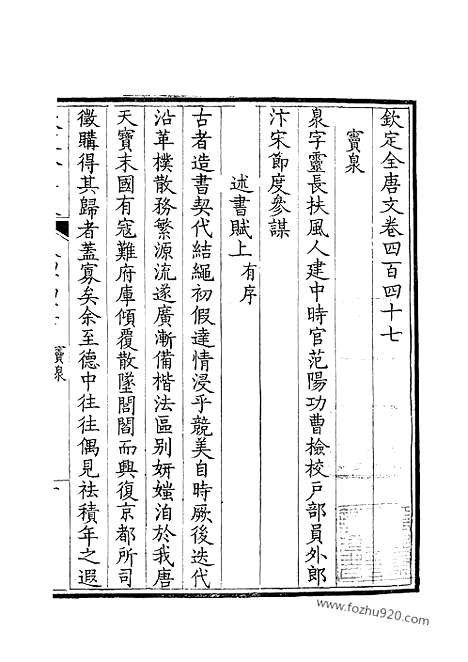 欽定全唐文卷四百四十七
竇臮
臮字靈長扶風人建中時官范陽功曹檢校戸部員外郎
汴宋節度參謀
述書賦上有序
古者造書契代結繩初假達情浸乎競美自時厥後迭代
沿革樸散務繁源流遂廣漸備楷法區别妍媸洎於我唐
天寶末國有寇難府庫傾覆散墜閭閻而興復京都所司
徵購得其歸者蓋寡矣余至德中往往偶見祛積年之遐
竇臮
一
www.fozhu920.com